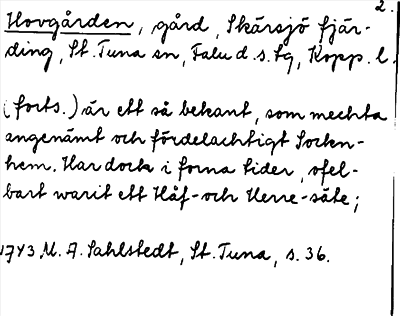 2.
Hovgården, gård, Skärsjö fjär-
ding, St. Tuna sn, Falu d. s. tg, Kopp. l.
(forts.) är ett så bekant, som mechta
angenämt och fördelachtigt Socken-
hem. Har dock i forna tider, ofel-
bart warit ett Håf- och Herre-säte;
1743. M. A. Sahlstedt, St. Tuna, s. 36.